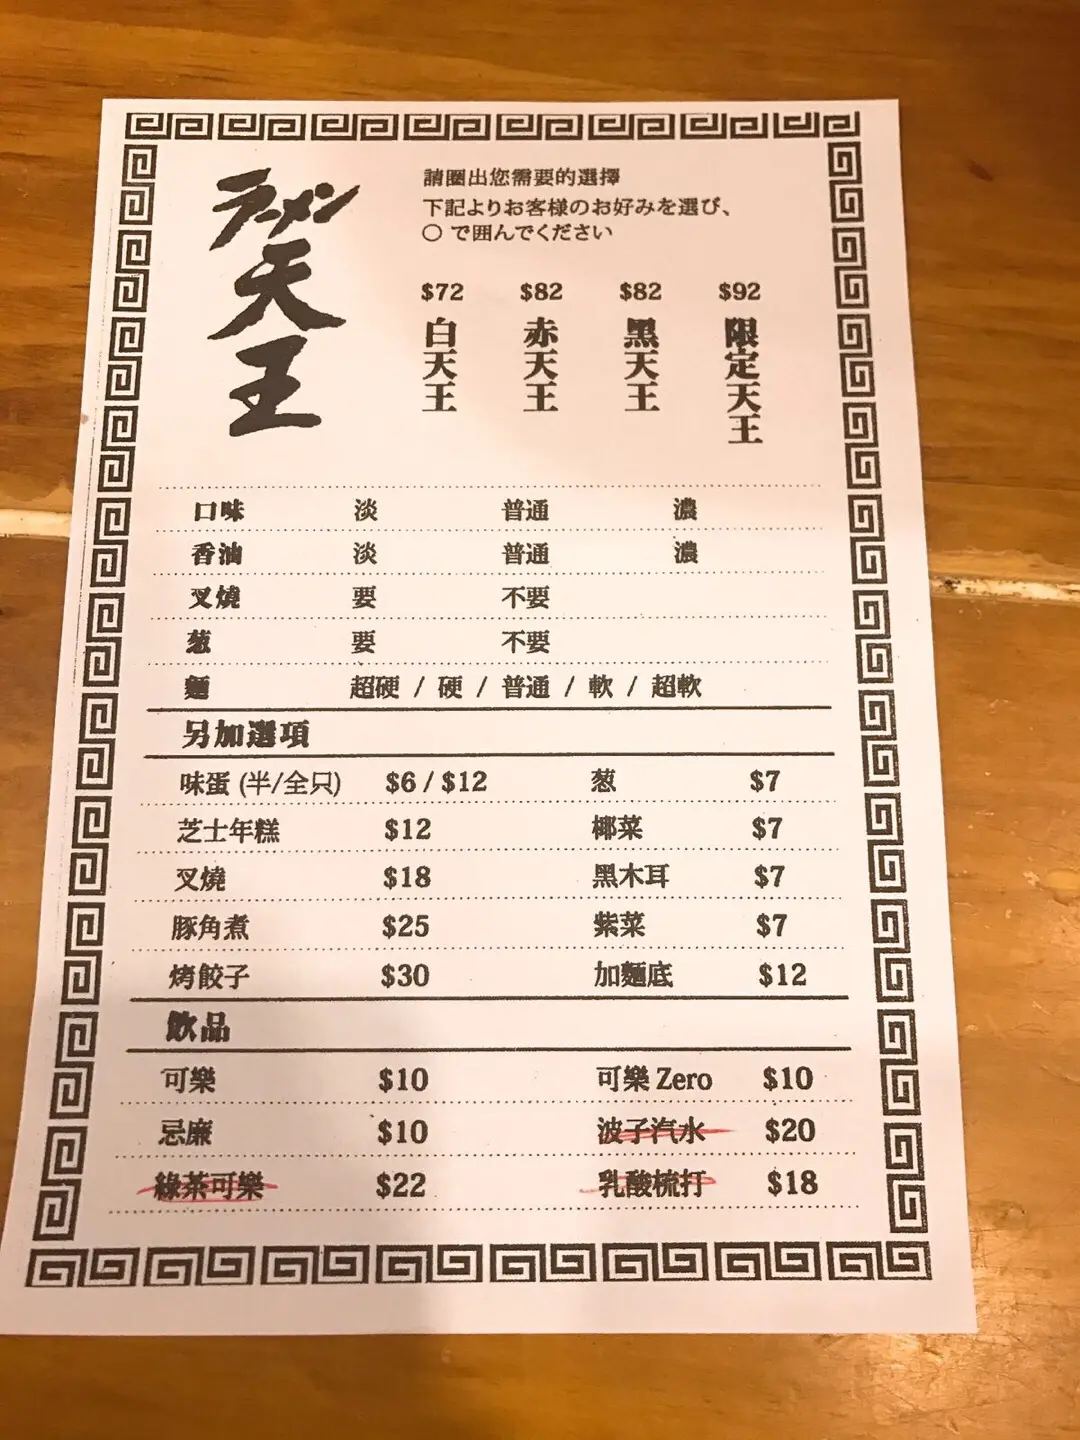 ラーメン
天王
請圈出您需要的選擇
下記よりお客様のお好みを選び、
○ で囲んでください
$72 $82 $82 $92
白天王 赤天王 黑天王 限定天王
口味 淡 普通 濃
香油 淡 普通 濃
叉燒 要 不要
葱 要 不要
麵 超硬 / 硬 / 普通 / 軟 / 超軟
另加選項
味蛋 (半/全只) $6 / $12 葱 $7
芝士年糕 $12 椰菜 $7
叉燒 $18 黑木耳 $7
豚角煮 $25 紫菜 $7
烤餃子 $30 加麵底 $12
飲品
可樂 $10 可樂 Zero $10
忌廉 $10 波子汽水 $20
綠茶可樂 $22 乳酸梳打 $18